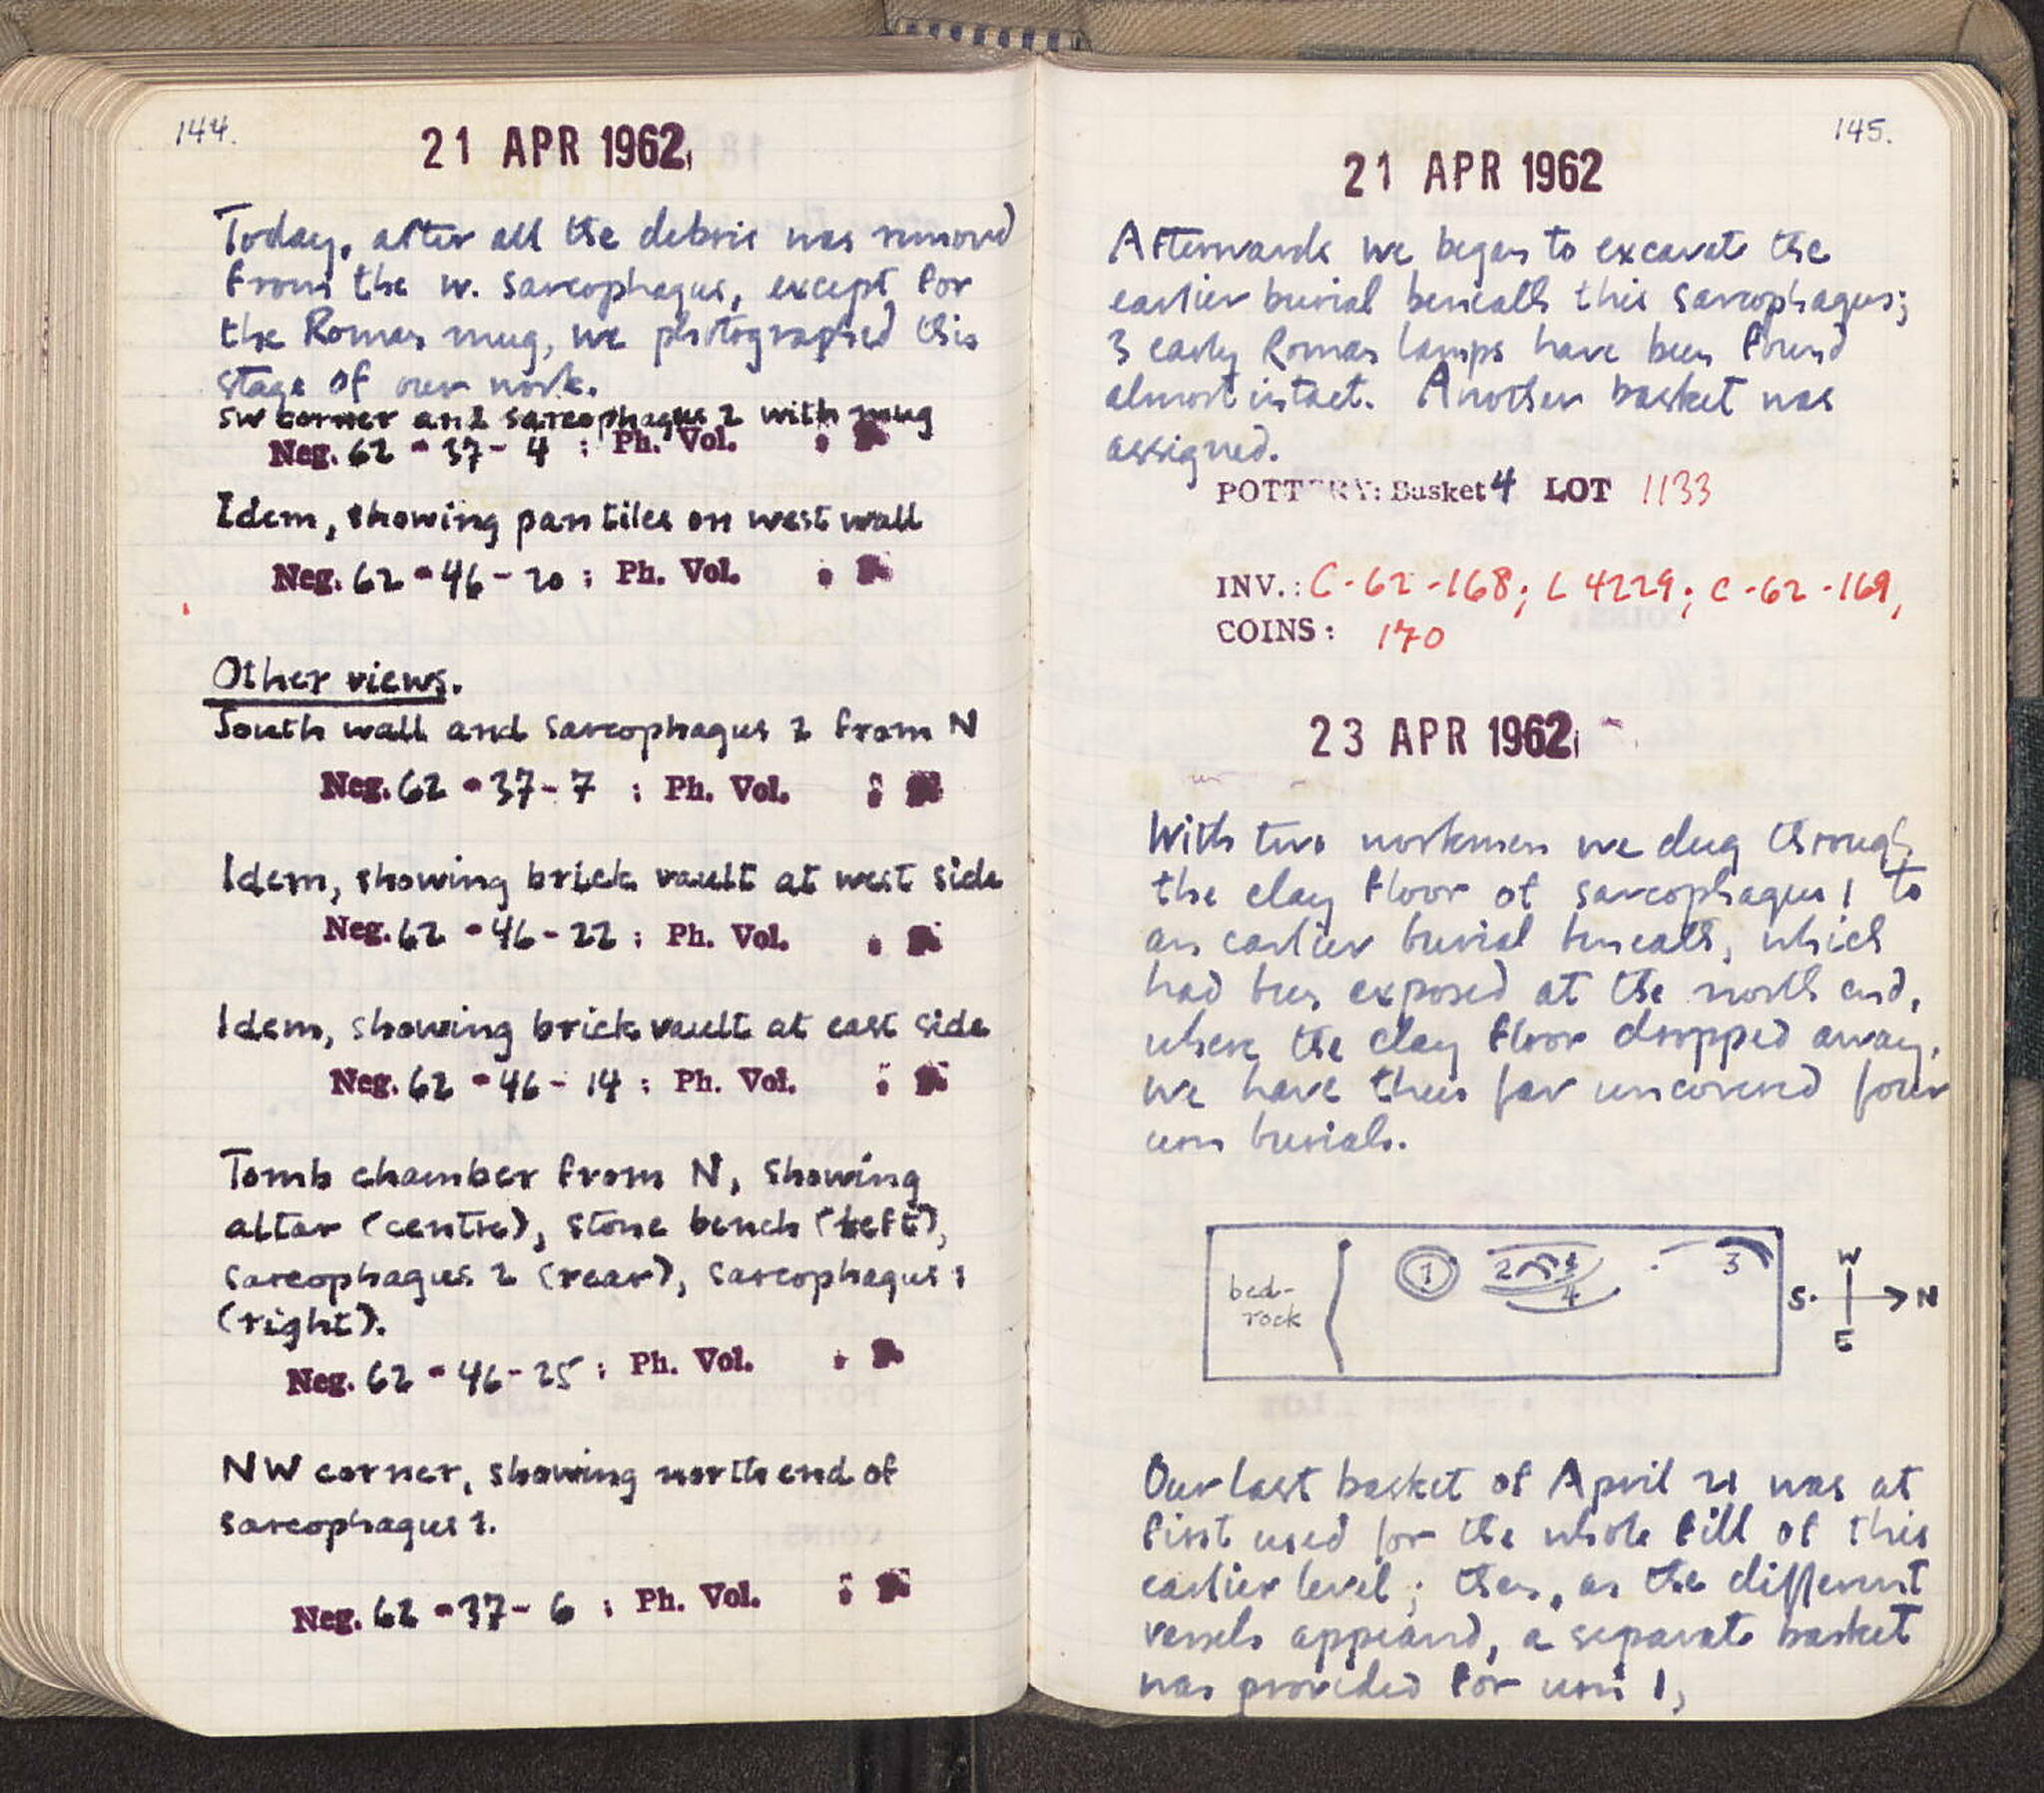 144.
21 APR 1962
Today, after all the debris was removed
from the w. sarcophagus, except for
the Roman mug, we photographed this
stage of our work.
SW corner and sarcophagus 2 with mug
Neg. 62-37-4 ; Ph. Vol.
Idem, showing pan tiles on west wall
Neg. 62-46-20 ; Ph. Vol.
Other views.
South wall and sarcophagus 2 from N
Neg. 62-37-7 ; Ph. Vol.
Idem, showing brick vault at west side
Neg. 62-46-22 ; Ph. Vol.
Idem, showing brick vault at east side
Neg. 62-46-14 ; Ph. Vol.
Tomb chamber from N, showing
altar (centre), stone bench (left),
sarcophagus 2 (rear), sarcophagus 1
(right).
Neg. 62-46-25 ; Ph. Vol.
NW corner, showing north end of
sarcophagus 1.
Neg. 62-37-6 ; Ph. Vol.
145.
21 APR 1962
Afterwards we began to excavate the
earlier burial beneath this sarcophagus;
3 early Roman lamps have been found
almost intact. Another basket was
assigned.
POTTERY: Basket 4 LOT 1133
INV.: C-62-168; L 4229; C-62-169,
COINS: 170
23 APR 1962
With two workmen we dug through
the clay floor of sarcophagus 1 to
an earlier burial beneath, which
had been exposed at the north end,
where the clay floor dropped away.
We have thus far uncovered four
urn burials.
bed-
rock
1
2
4
3
W
S. N
E
Our last basket of April 21 was at
first used for the whole fill of this
earlier level; then, as the different
vessels appeared, a separate basket
was provided for urn 1,